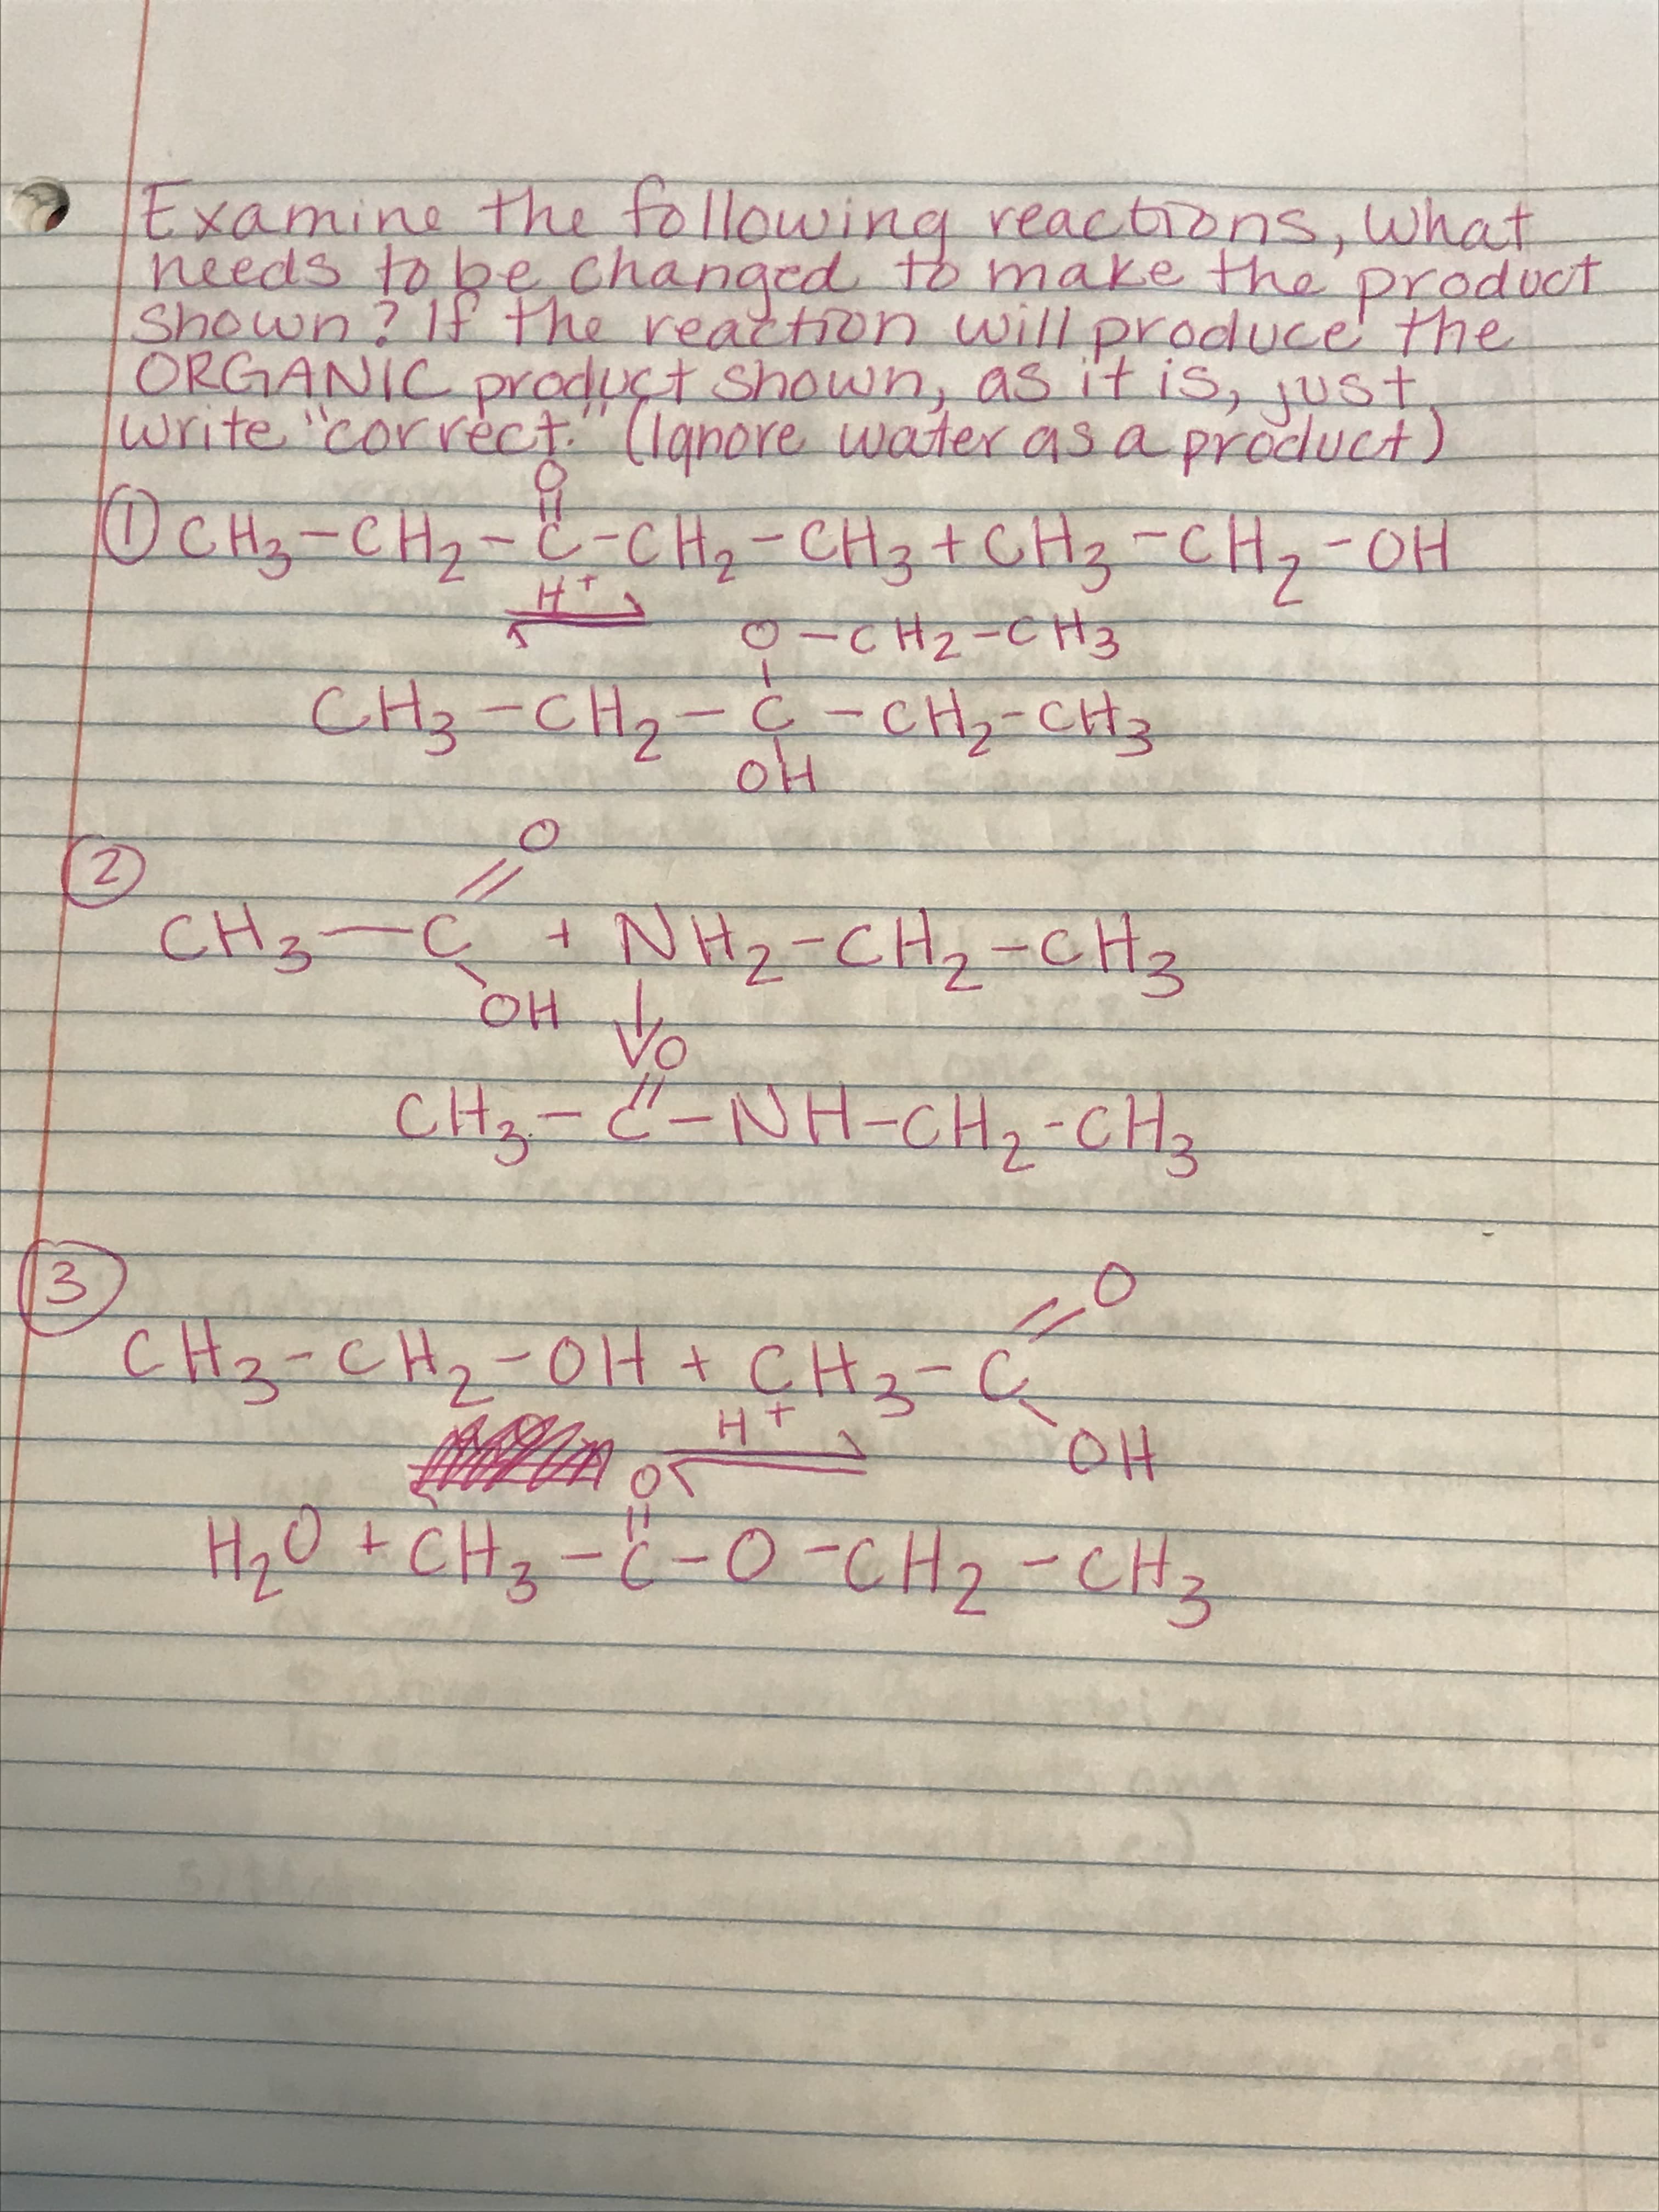 Examine the following reactions, What
needs to be changed to make the product
shown? If the reaction will produce the
ORGANIC product shown, as it is, just
write "correct." (Ignore water as a product)
O
① CH₃-CH₂-C-CH₂-CH₃+CH₃-CH₂-OH
H⁺
O-CH₂-CH₃
CH₃-CH₂-C-CH₂-CH₃
OH
② O
CH₃-C + NH₂-CH₂-CH₃
OH
O
CH₃-C-NH-CH₂-CH₃
③ O
CH₃-CH₂-OH + CH₃-C
H⁺ OH
O
H₂O + CH₃-C-O-CH₂-CH₃